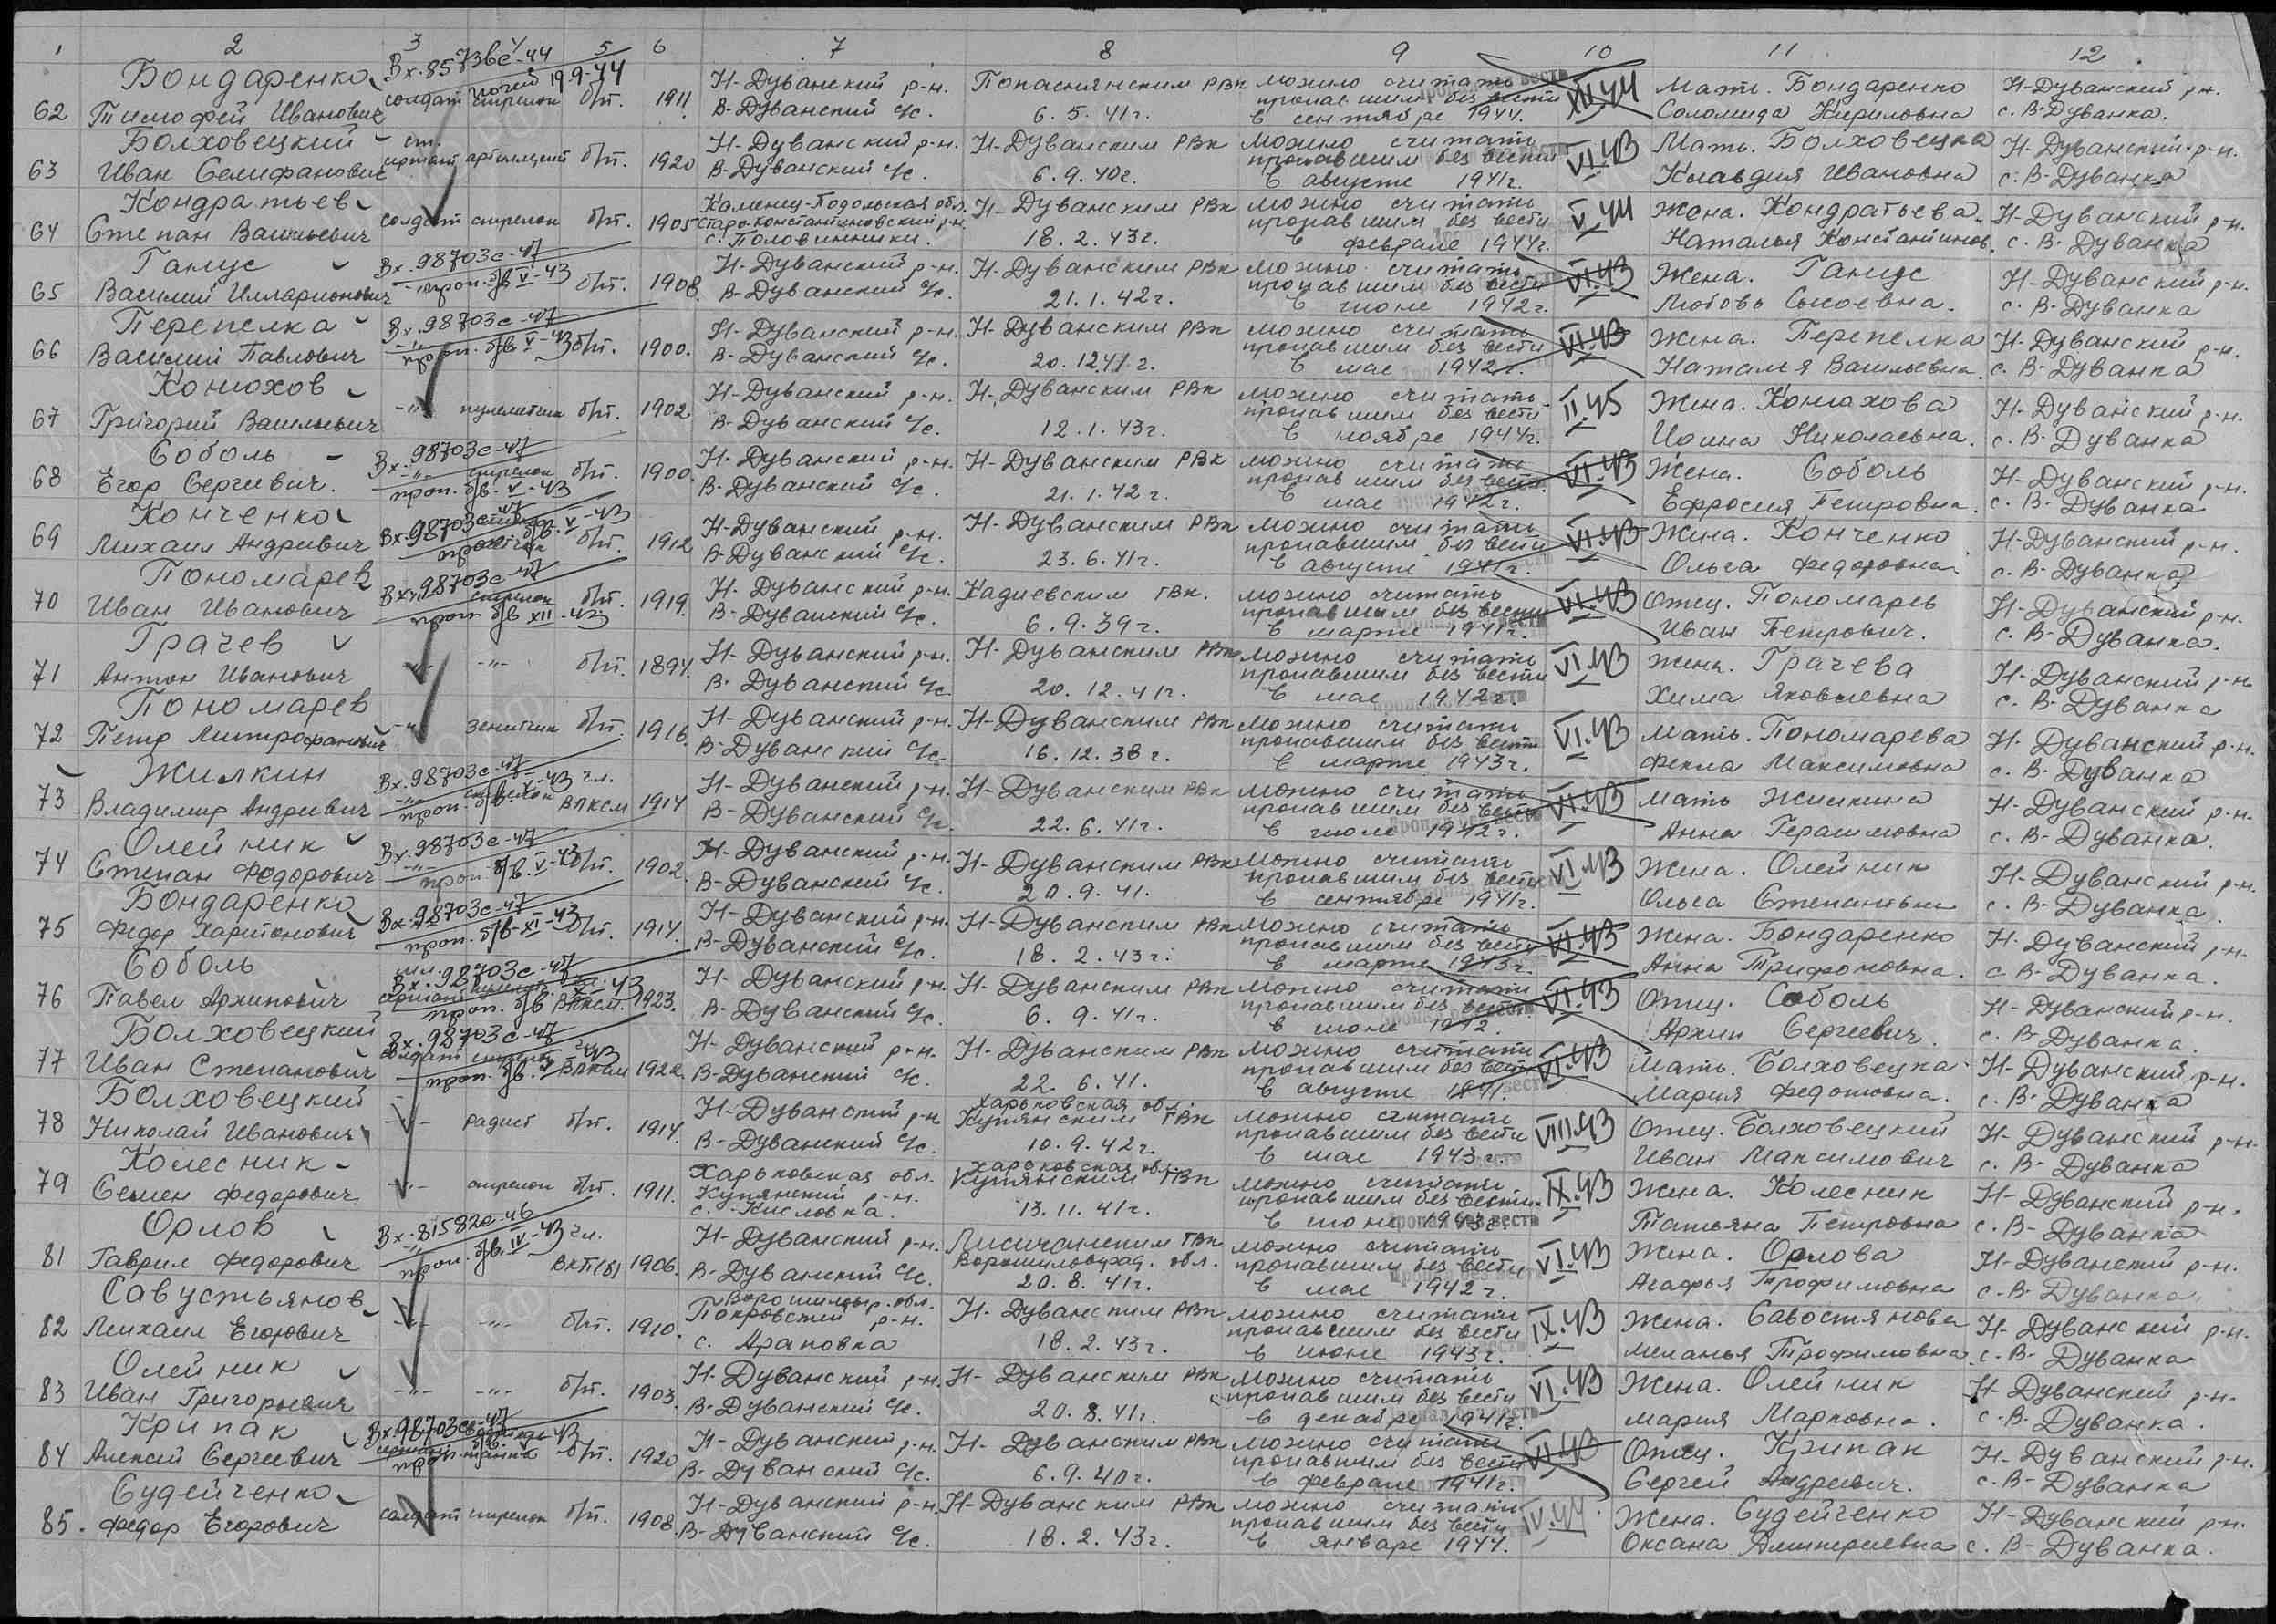 1 2 3 4 5 6 7 8 9 10 11 12
62 Бондаренко Тимофей Иванович Вх. 85736с-44 солдат стрелок погиб 19.9-44 б/п. 1911. Н-Дуванский р-н. В-Дуванский с/с. Попаснянским РВк 6.5.41г. можно считать пропавшим без вести в сентябре 1944. XII.44 Мать. Бондаренко Соломида Кириловна Н-Дуванский р-н. с. В-Дуванка.
63 Болховецкий Иван Селифанович ст. сержант артиллерист б/п. 1920 Н-Дуванский р-н. В-Дуванский с/с. Н-Дуванским РВк 6.9.40г. можно считать пропавшим без вести в августе 1941г. VI.43 Мать. Болховецка Клавдия Ивановна Н-Дуванский р-н. с. В-Дуванка
64 Кондратьев Степан Васильевич солдат стрелок б/п. 1905 Каменец-Подольская обл. Старо-Константиновский р-н. с. Половинники. Н-Дуванским РВк 18.2.43г. можно считать пропавшим без вести в феврале 1944г. V.44 Жена. Кондратьева Наталья Константинов. Н-Дуванский р-н. с. В-Дуванка
65 Ганус Василий Илларионович Вх. 98703с-47 проп. б/в V-43 б/п. 1908. Н-Дуванский р-н. В-Дуванский с/с. Н-Дуванским РВк 21.1.42г. можно считать пропавшим без вести в июне 1942г. VI.43 Жена. Ганус Любовь Сысоевна. Н-Дуванский р-н. с. В-Дуванка
66 Перепелка Василий Павлович Вх. 98703с-47 проп. б/в. V-43 б/п. 1900. Н-Дуванский р-н. В-Дуванский с/с. Н-Дуванским РВк 20.12.41г. можно считать пропавшим без вести в мае 1942г. VI.43 Жена. Перепелка Наталья Васильевна. Н-Дуванский р-н. с. В-Дуванка
67 Конюхов Григорий Васильевич -"- пулеметчик б/п. 1902 Н-Дуванский р-н. В-Дуванский с/с. Н-Дуванским РВк 12.1.43г. можно считать пропавшим без вести в ноябре 1944г. II.45 Жена. Конюхова Николаевна. Н-Дуванский р-н. с. В-Дуванка
68 Соболь Егор Сергиевич. Вх. 98703с-47 -"- стрелок проп. б/в. V-43 б/п. 1900. Н-Дуванский р-н. В-Дуванский с/с. Н-Дуванским РВк 21.1.42г. можно считать пропавшим без вести в мае 1942г. VI.43 Жена. Соболь Ефросия Петровна. Н-Дуванский р-н. с. В-Дуванка
69 Конченко Михаил Андриевич Вх. 98703с-47 проп. б/в. V-43 б/п. 1912 Н-Дуванский р-н. В-Дуванский с/с. Н-Дуванским РВк 23.6.41г. можно считать пропавшим без вести в августе 1941г. VI.43 Жена. Конченко Ольга Федоровна. Н-Дуванский р-н. с. В-Дуванка
70 Пономарев Иван Иванович Вх. 98703с-47 стрелок проп. б/в XII-43 б/п. 1919. Н-Дуванский р-н. В-Дуванский с/с. Кадиевским ГВк. 6.9.39г. можно считать пропавшим без вести в марте 1941г. VI.43 Отец. Пономарев Иван Петрович. Н-Дуванский р-н. с. В-Дуванка.
71 Грачев Антон Иванович -"- -"- б/п. 1894. Н-Дуванский р-н. В-Дуванский с/с Н-Дуванским РВк 20.12.41г. можно считать пропавшим без вести в мае 1942г. VI.43 Жена. Грачева Хима Яковлевна Н-Дуванский р-н. с. В-Дуванка
72 Пономарев Петр Митрофанович -"- зенитчик б/п. 1916. Н-Дуванский р-н. В-Дуванский с/с Н-Дуванским РВк 16.12.38г. можно считать пропавшим без вести в марте 1943г. VI.43 Мать. Пономарева Фекла Максимовна Н-Дуванский р-н. с. В-Дуванка
73 Жилкин Владимир Андреевич Вх. 98703с-47 -"- стрелок проп. б/в. V-43 чл. ВЛКСМ 1914 Н-Дуванский р-н. В-Дуванский с/с. Н-Дуванским РВк 22.6.41г. можно считать пропавшим без вести в июле 1942г. VI.43 Мать Жилкина Анна Герасимовна Н-Дуванский р-н. с. В-Дуванка.
74 Олейник Степан Федорович Вх. 98703с-47 проп. б/в. V-43 б/п. 1902. Н-Дуванский р-н. В-Дуванский с/с. Н-Дуванским РВк 20.9.41. можно считать пропавшим без вести в сентябре 1941г. VI.43 Жена. Олейник Ольга Степановна Н-Дуванский р-н. с. В-Дуванка.
75 Бондаренко Федор Харитонович Вх. 98703с-47 проп. б/в-XI-43 б/п. 1914. Н-Дуванский р-н. В-Дуванский с/с. Н-Дуванским РВк 18.2.43г. можно считать пропавшим без вести в марте 1943г. VI.43 Жена. Бондаренко Анна Трифоновна. Н-Дуванский р-н. с В-Дуванка.
76 Соболь Павел Архипович мл. сержант Вх. 98703с-47 проп. б/в. ВЛКСМ. 1923. Н-Дуванский р-н. В-Дуванский с/с. Н-Дуванским РВк 6.9.41г. можно считать пропавшим без вести в июне 1942. VI.43 Отец. Соболь Архип Сергеевич. Н-Дуванский р-н. с. В-Дуванка.
77 Болховецкий Иван Степанович Вх. 98703с-47 солдат стрелок проп. б/в. V-43 ВЛКСМ Н-Дуванский р-н. В-Дуванский с/с. Н-Дуванским РВк 22.6.41. можно считать пропавшим без вести в августе 1941. VI.43 Мать. Болховецка Мария Федотовна. Н-Дуванский р-н. с. В-Дуванка
78 Болховецкий Николай Иванович -"- радист б/п. 1914. Н-Дуванский р-н В-Дуванский с/с. Харьковская обл. Купянским ГВк 10.9.42г. можно считать пропавшим без вести в мае 1943г. VIII.43 Отец. Болховецкий Иван Максимович Н-Дуванский р-н. с. В-Дуванка
79 Колесник Семен Федорович -"- стрелок б/п. 1911. Харьковская обл. Купянский р-н. с. Кисловка. Харьковская обл. Купянским ГВк 13.11.41г. можно считать пропавшим без вести в июне 1943г. IX.43 Жена. Колесник Татьяна Петровна Н-Дуванский р-н. с. В-Дуванка
81 Орлов Гаврил Федорович Вх. 81582с-46 проп. б/в. IV-43 чл. ВКП(б) 1906. Н-Дуванский р-н. В-Дуванский с/с. Лисичанским ГВк Ворошиловград. обл. 20.8.41г. можно считать пропавшим без вести в мае 1942г. VI.43 Жена. Орлова Агафья Трофимовна Н-Дуванский р-н. с. В-Дуванка
82 Савустьянов Михаил Егорович -"- -"- б/п. 1910. Ворошиловгр. обл. Покровский р-н. с. Араповка Н-Дуванским РВк 18.2.43г. можно считать пропавшим без вести в июне 1943г. IX.43 Жена. Савостянова Меланья Трофимовна. Н-Дуванский р-н. с. В-Дуванка
83 Олейник Иван Григорьевич -"- -"- б/п. 1903. Н-Дуванский р-н. В-Дуванский с/с. Н-Дуванским РВк 20.8.41г. можно считать пропавшим без вести в декабре 1941г. VI.43 Жена. Олейник Мария Марковна. Н-Дуванский р-н. с. В-Дуванка.
84 Крипак Алексей Сергеевич Вх. 98703с-47 проп. б/в. V-43 танка б/п. 1920 Н-Дуванский р-н. В-Дуванский с/с. Н-Дуванским РВк 6.9.40г. можно считать пропавшим без вести в феврале 1941г. VI.43 Отец. Крипак Сергей Андреевич. Н-Дуванский р-н. с. В-Дуванка
85. Судейченко Федор Егорович солдат стрелок б/п. 1908. Н-Дуванский р-н. В-Дуванский с/с. Н-Дуванским РВк 18.2.43г. можно считать пропавшим без вести в январе 1944. IV.44. Жена. Судейченко Оксана Дмитриевна Н-Дуванский р-н. с. В-Дуванка.